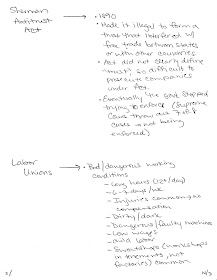 Sherman
Antitrust
Act
• 1890
• Made it illegal to form a
trust that interfered w/
free trade between states
or with other countries
• Act did not clearly define
"trust", so difficult to
prosecute companies
under Act.
• Eventually the govt stopped
trying to enforce (Supreme
Court threw out 7 of 8
cases → not being
enforced)
Labor
Unions
• Bad/dangerous working
conditions
- Long hours (12+/day)
- 6-7 days/wk
- Injuries common, no
compensation
- Dirty/dark
- Dangerous/faulty machines
- Low wages
- Child labor
- Sweatshops (workshops
in tenements, not
factories) common